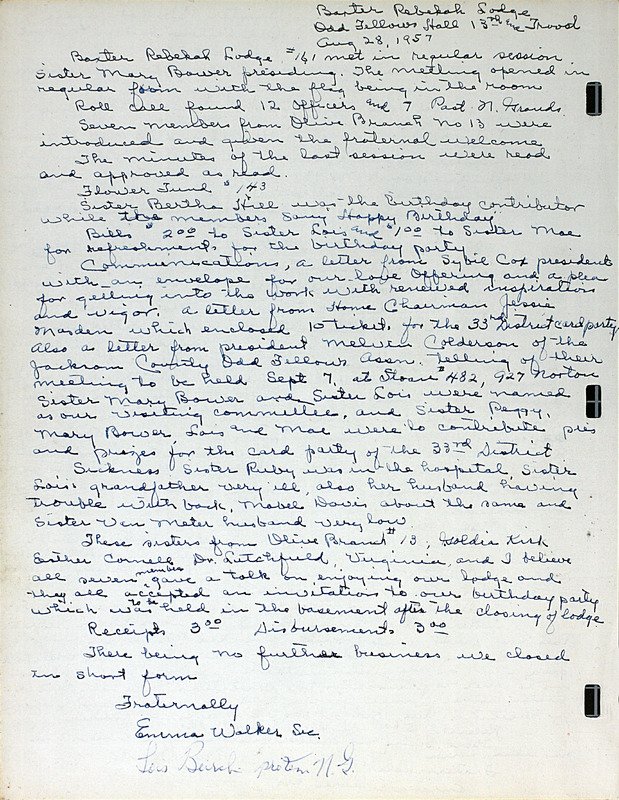 Baxter Rebekah Lodge
Odd Fellows Hall 13th and Troost
Aug 28, 1957
Baxter Rebekah Lodge #161 met in regular session
Sister Mary Bower presiding. The meeting opened in
regular form with the flag being in the room
Roll call found 12 Officers and 7 Past N. Grands.
Seven members from Olive Branch No 13 were
introduced and given the fraternal welcome
The minutes of the last session were read
and approved as read.
Flower Fund $1.43
Sister Bertha Hill was the Birthday contributor
while the members Sang Happy Birthday
Bills $2.00 to Sister Lois and $1.00 to Sister Mae
for refreshments for the birthday party
Communications, a letter from Sybil Cox president
with an envelope for our love Offering and a plea
for getting into the work with renewed inspiration
and vigor. A letter from Home Chairman Jessie
Marden which enclosed 10 tickets for the 33rd District card party
Also a letter from president Melvin Colderson of the
Jackson County Odd Fellows Assn. telling of their
meeting to be held Sept 7, at #482, 927 Norton
Sister Mary Bower and Sister Lois were named
as our visiting committee, and Sister Peggy,
Mary Bower, Lois and Mae were to contribute pies
and prizes for the card party of the 33rd District
Sickness Sister Ruby was in the hospital Sister
Lois' grandfather very ill, also her husband having
trouble with back, Mabel Davis about the same and
Sister Van Meter husband very low.
These sisters from Olive Branch #13, Goldie Kirk
Esther Cornell, Dr. Lutchfield, Virginia, and I believe
all seven member gave a talk on enjoying our lodge and
they all accepted an invitation to our birthday party
which was to be held in the basement after the closing of lodge
Receipts 3.00 Disbursements 3.00
There being no further business we closed
in short form
Fraternally
Emma Walker Sec.
Lois protem N.G.